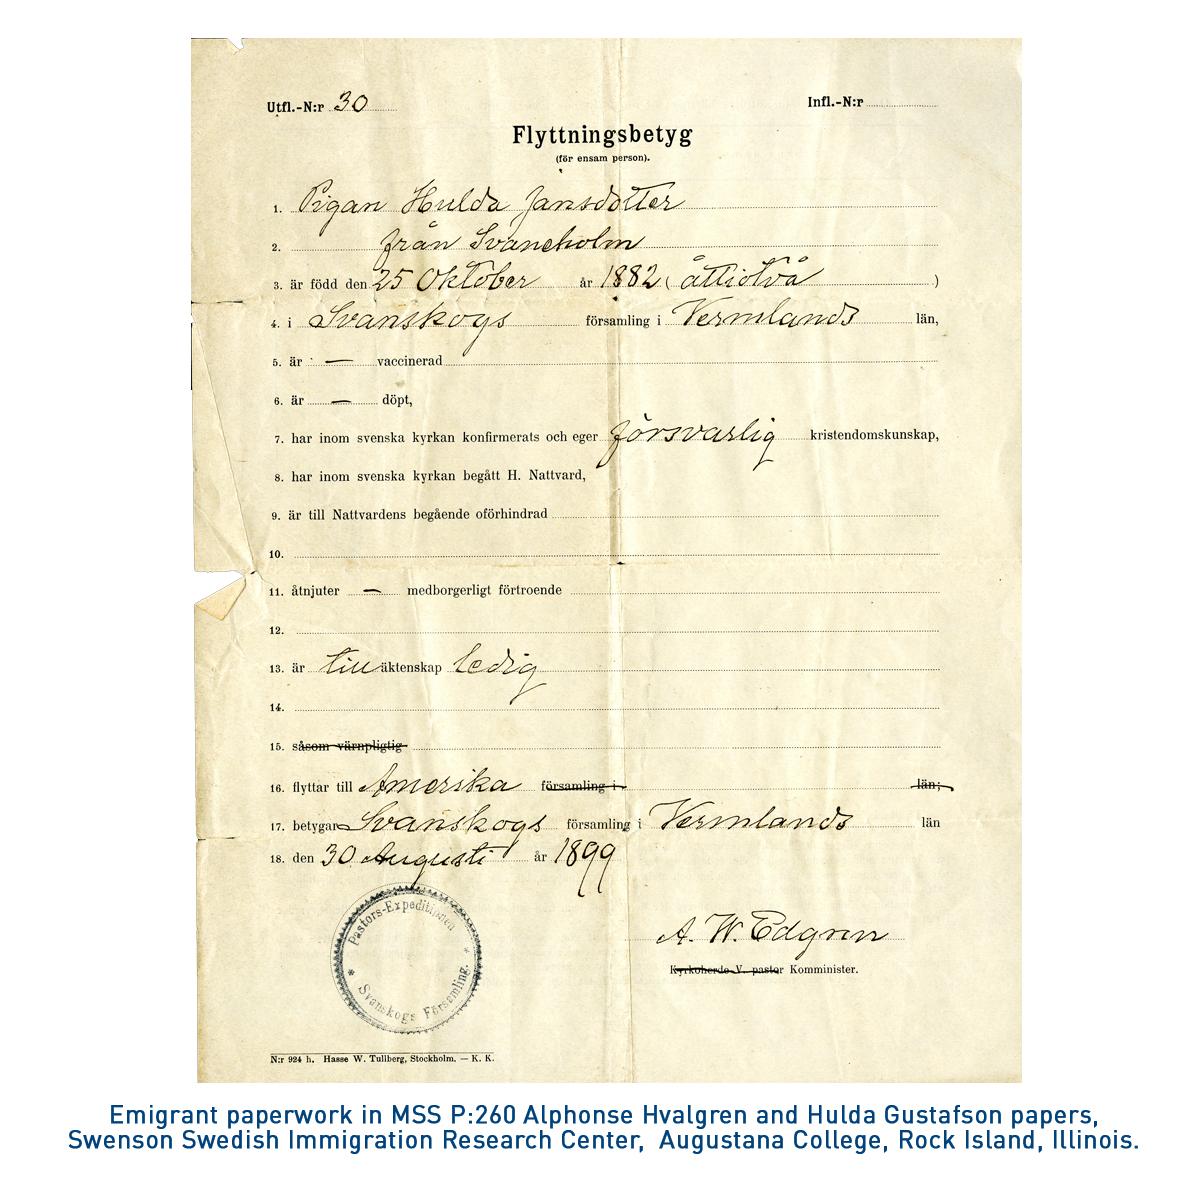 Utfl.-N:r 30 Infl.-N:r
Flyttningsbetyg
(för ensam person).
1. Pigan Hulda Jansdotter
2. från Svaneholm
3. är född den 25 Oktober år 1882 (åttiotvå)
4. i Svanskogs församling i Vermlands län,
5. är — vaccinerad
6. är — döpt,
7. har inom svenska kyrkan konfirmerats och eger försvarlig kristendomskunskap,
8. har inom svenska kyrkan begått H. Nattvard,
9. är till Nattvardens begående oförhindrad
10.
11. åtnjuter — medborgerligt förtroende
12.
13. är till äktenskap ledig
14.
15. såsom värnpligtig
16. flyttar till Amerika församling i län;
17. betygar Svanskogs församling i Vermlands län
18. den 30 Augusti år 1899
Pastors-Expeditionen
* Svanskogs Församling. *
A. W. Edgren
Kyrkoherde V. pastor Komminister.
N:r 924 h. Hasse W. Tullberg, Stockholm. — K. K.
Emigrant paperwork in MSS P:260 Alphonse Hvalgren and Hulda Gustafson papers,
Swenson Swedish Immigration Research Center, Augustana College, Rock Island, Illinois.